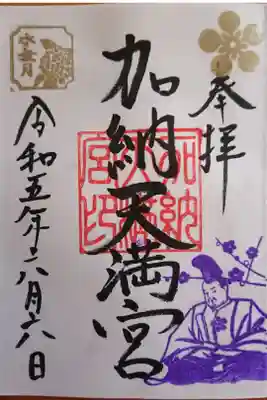 奉拝
加納天満宮
加納
天満
宮印
令和五年六月六日
水無月